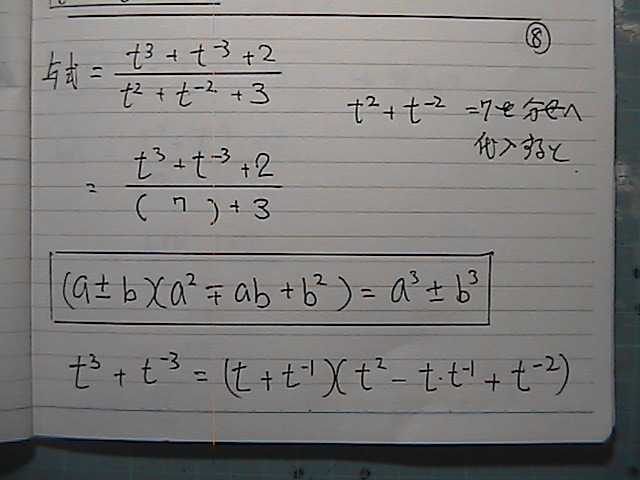 ⑧
与式 = (t³ + t⁻³ + 2) / (t² + t⁻² + 3)
t² + t⁻² = 7を分母へ
代入すると
= (t³ + t⁻³ + 2) / (( 7 ) + 3)
(a ± b)(a² ∓ ab + b²) = a³ ± b³
t³ + t⁻³ = (t + t⁻¹)(t² − t・t⁻¹ + t⁻²)